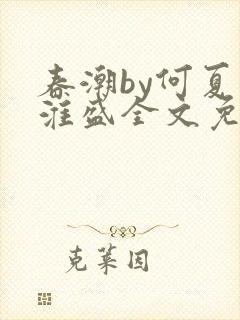 春潮by何夏
淮盛全文免
克莱因